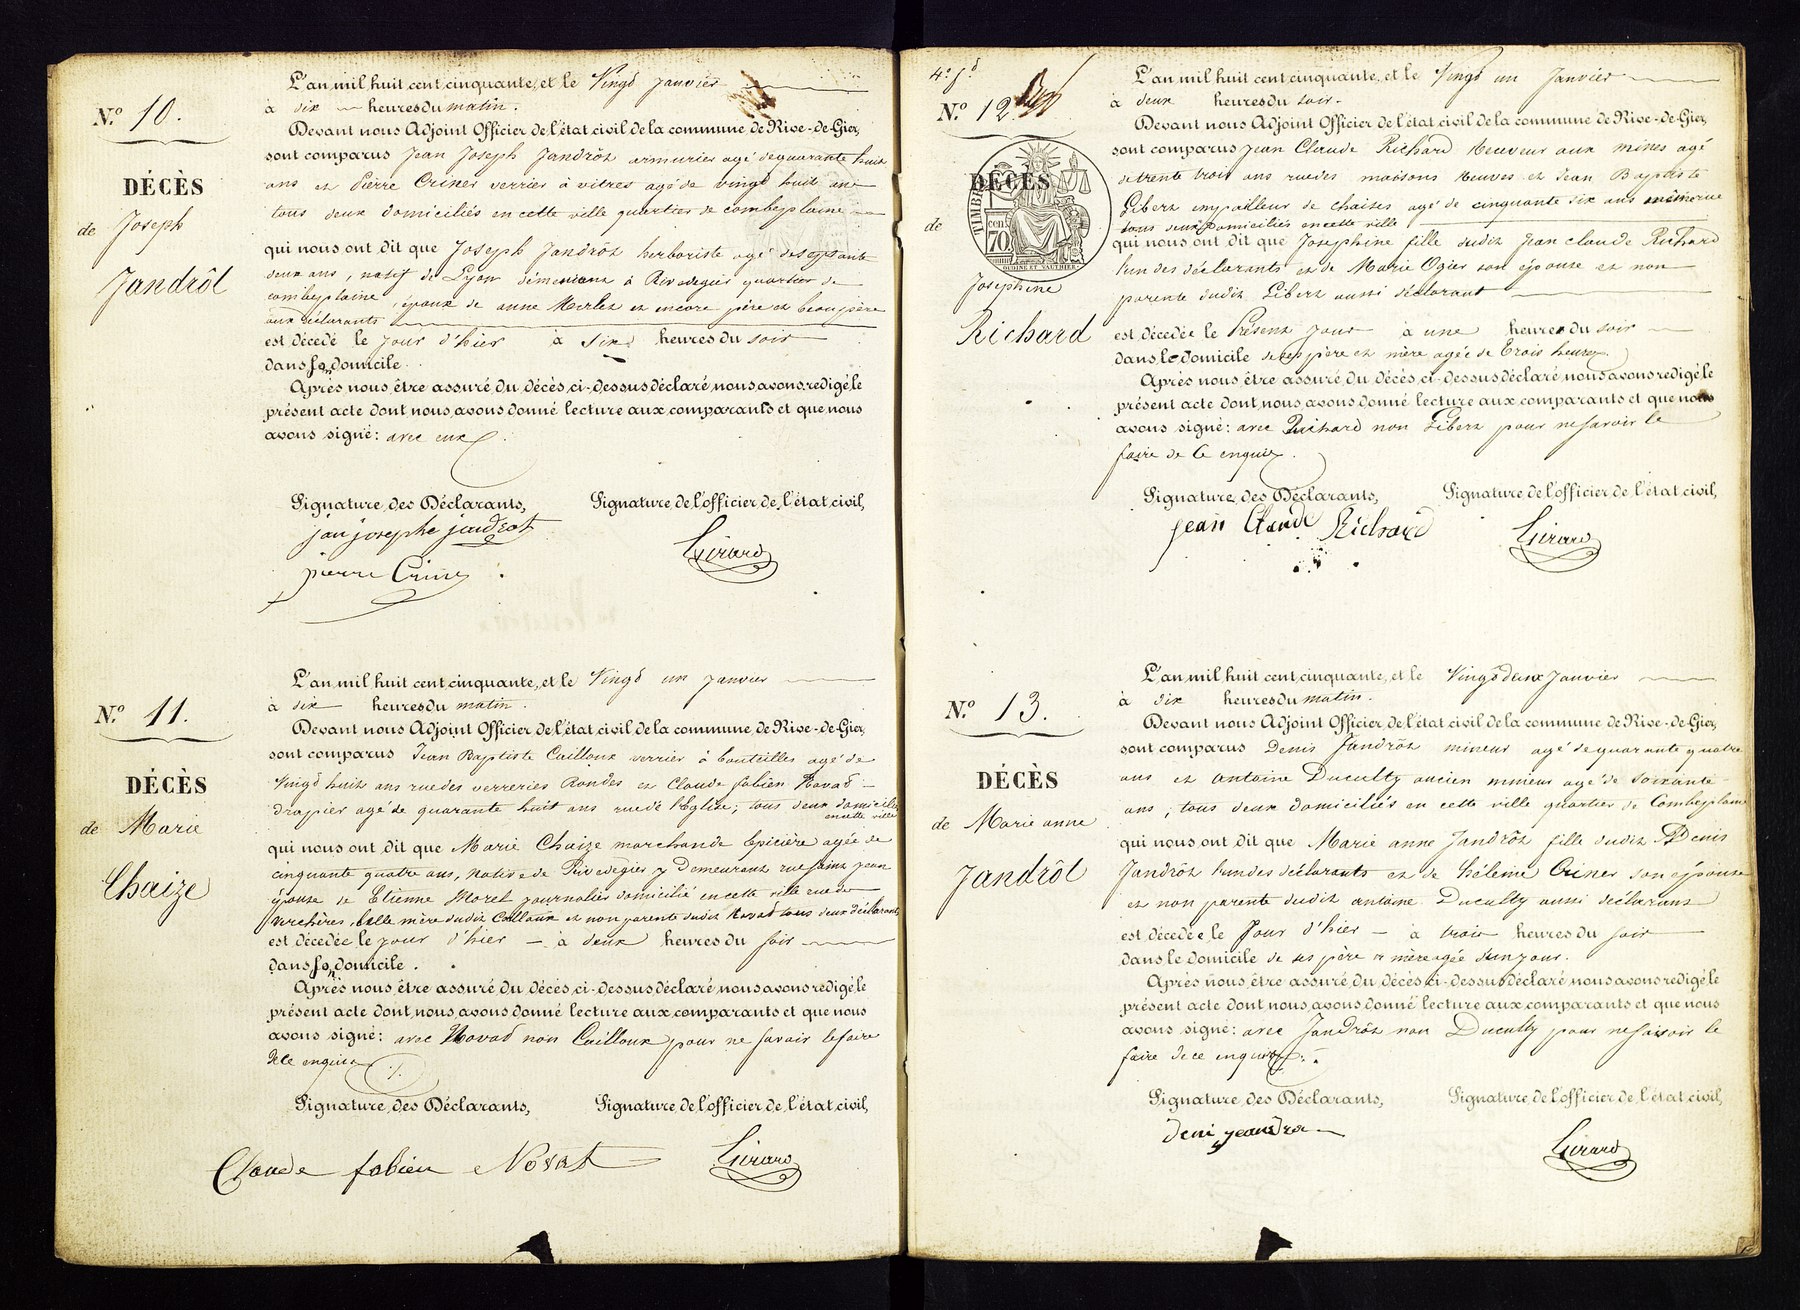 N.o 10.
DÉCÈS
de Joseph
Jandrôt
L'an mil huit cent cinquante, et le Vingt Janvier
à dix heures du matin.
Devant nous Adjoint Officier de l'état civil de la commune de Rive-de-Gier,
sont comparus Jean Joseph Jandrôt armurier agé de quarante huit
ans et Pierre Criner verrier à vitres agé de vingt huit ans
tous deux domiciliés en cette ville quartier de combeplaine
qui nous ont dit que Joseph Jandrôt herboriste agé de soixante
deux ans, natif de Lyon demeurant à Rivedegier quartier de
combeplaine, époux de anne Merlet et encore père et beaupère
aux déclarants
est décedé le jour d'hier à six heures du soir
dans son domicile.
Après nous être assuré du décès, ci-dessus déclaré, nous avons redigé le
présent acte dont nous avons donné lecture aux comparants et que nous
avons signé: avec eux
Signature des Déclarants, Signature de l'officier de l'état civil,
jan josephe jandrot
pierre Criner
Girard
N.o 11.
DÉCÈS
de Marie
Chaize
L'an mil huit cent cinquante, et le Vingt un Janvier
à dix heures du matin.
Devant nous Adjoint Officier de l'état civil de la commune de Rive-de-Gier,
sont comparus Jean Baptiste Cailloux verrier à bouteilles agé de
Vingt huit ans rue des verreries Rondes et Claude fabien Novat
drapier agé de quarante huit ans rue de l'Eglise; tous deux domiciliés
en cette ville
qui nous ont dit que Marie Chaize marchande Epicière agée de
cinquante quatre ans, native de Rivedegier y Demeurant rue saint jean
épouse de Etienne Moret journalier domicilié en cette ville rue des
Verchères, belle mère dudit Cailloux et non parente dudit Novat tous deux déclarants
est décedée le jour d'hier à deux heures du soir
dans son domicile.
Après nous être assuré du décès, ci-dessus déclaré, nous avons redigé le
présent acte dont nous avons donné lecture aux comparants et que nous
avons signé: avec Novat non Cailloux pour ne savoir le faire
de ce enquis
Signature des Déclarants, Signature de l'officier de l'état civil,
Claude fabien Novat
Girard
4e f.d
N.o 12
DÉCÈS
de
TIMBRE
70.
Josephine
Richard
L'an mil huit cent cinquante, et le Vingt un Janvier
à deux heures du soir.
Devant nous Adjoint Officier de l'état civil de la commune de Rive-de-Gier,
sont comparus Jean Claude Richard receveur aux mines agé
de trente trois ans rue des maisons neuves et Jean Baptiste
Gibert empailleur de chaises agé de cinquante six ans même rue
tous deux domiciliés en cette ville
qui nous ont dit que Josephine fille dudit Jean Claude Richard
l'un des déclarants et de Marie Ogier son épouse et non
parente dudit Gibert aussi déclarant
est décedée le Présent jour à une heure du soir
dans le domicile de ses père et mère agée de trois heures.
Après nous être assuré du décès, ci-dessus déclaré, nous avons redigé le
présent acte dont nous avons donné lecture aux comparants et que nous
avons signé: avec Richard non Gibert pour ne savoir le
faire de ce enquis.
Signature des Déclarants, Signature de l'officier de l'état civil,
jean Claude Richard
Girard
N.o 13.
DÉCÈS
de Marie anne
Jandrôt
L'an mil huit cent cinquante, et le Vingt deux Janvier
à dix heures du matin.
Devant nous Adjoint Officier de l'état civil de la commune de Rive-de-Gier,
sont comparus Denis Jandrôt mineur agé de quarante quatre
ans et antoine Duculty ancien mineur agé de soixante
ans, tous deux domiciliés en cette ville quartier de Combeplaine
qui nous ont dit que Marie anne Jandrôt fille dudit Denis
Jandrôt l'un des déclarants et de hélène Criner son épouse
et non parente dudit antoine Duculty aussi déclarant
est décedée le Jour d'hier à trois heures du soir
dans le domicile de ses père et mère agée d'un jour.
Après nous être assuré du décès, ci-dessus déclaré, nous avons redigé le
présent acte dont nous avons donné lecture aux comparants et que nous
avons signé: avec Jandrôt non Duculty pour ne savoir le
faire de ce enquis
Signature des Déclarants, Signature de l'officier de l'état civil,
deni jeandro
Girard